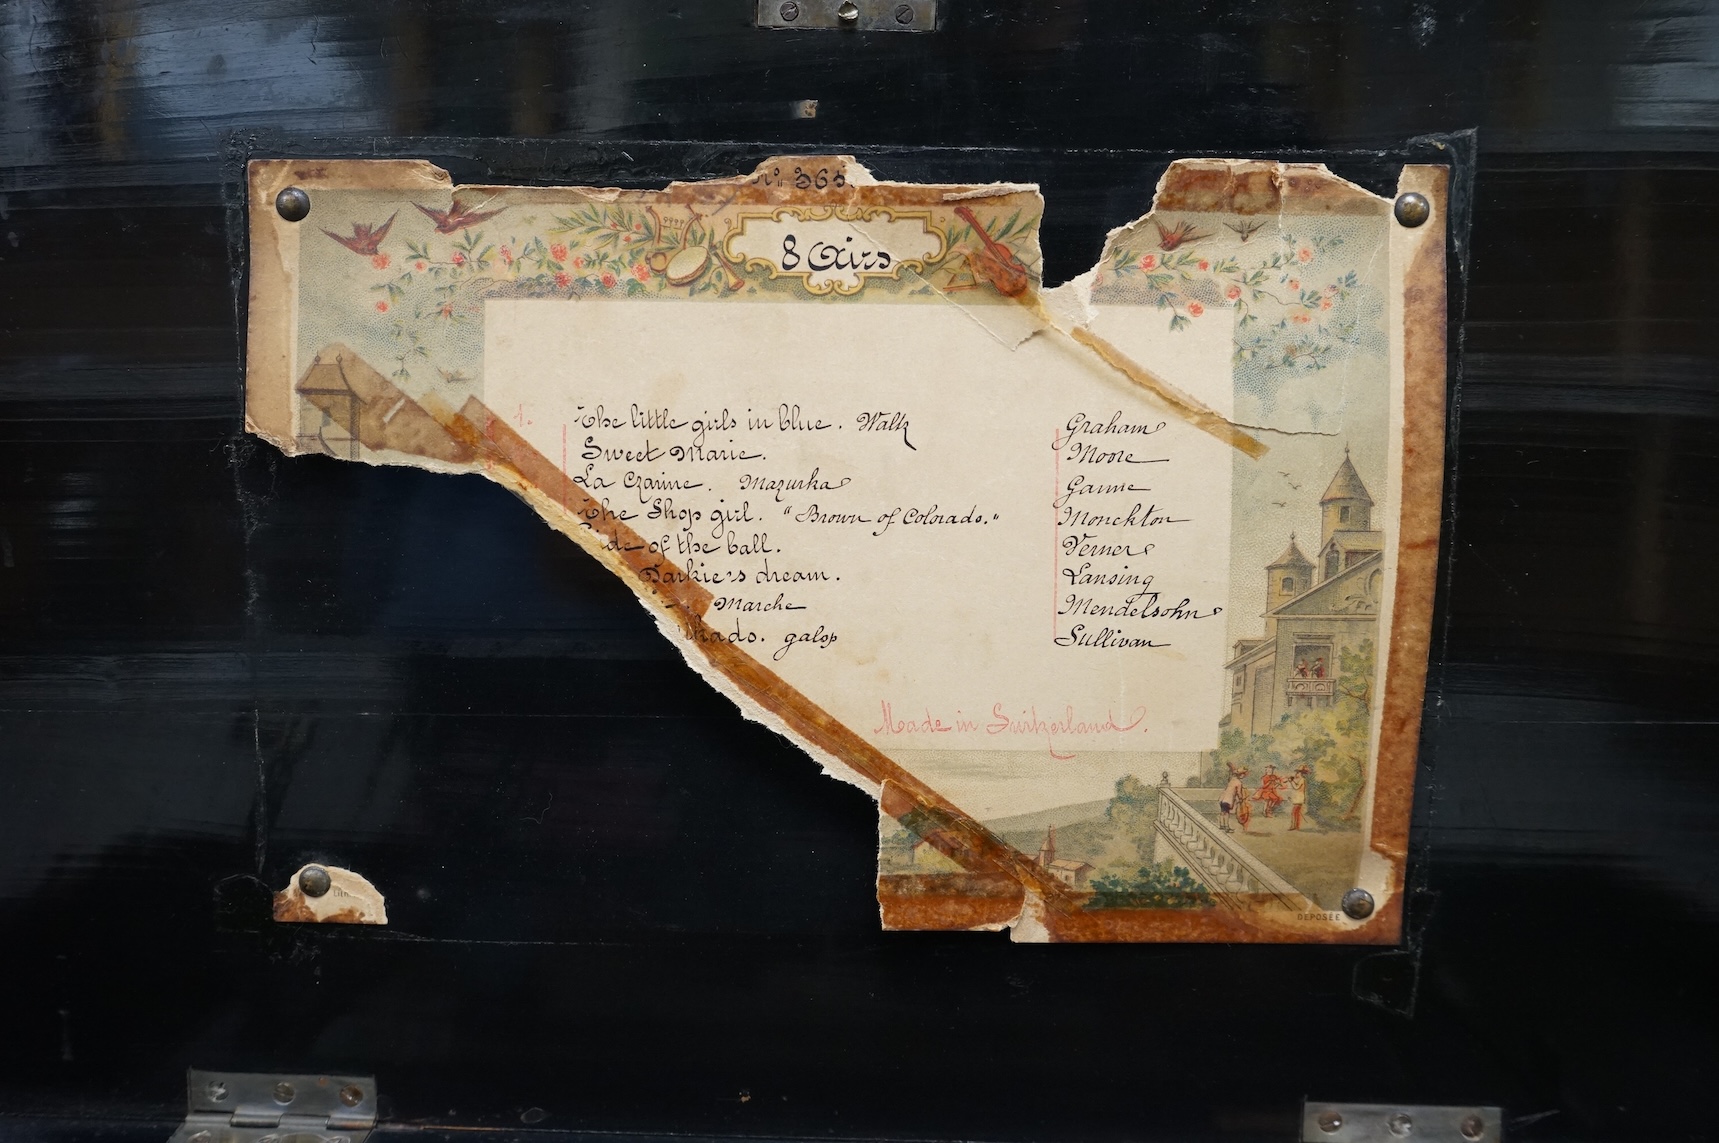 No 365.
8 Airs
1. The little girls in blue. Waltz Graham
Sweet Marie. Moore
La Czarine. Mazurka Ganne
The Shop girl. "Brown of Colorado." Monckton
of the ball. Verner
Darkie's dream. Lansing
Marche Mendelsohn
kado. galop Sullivan
Made in Switzerland.
DEPOSÉE